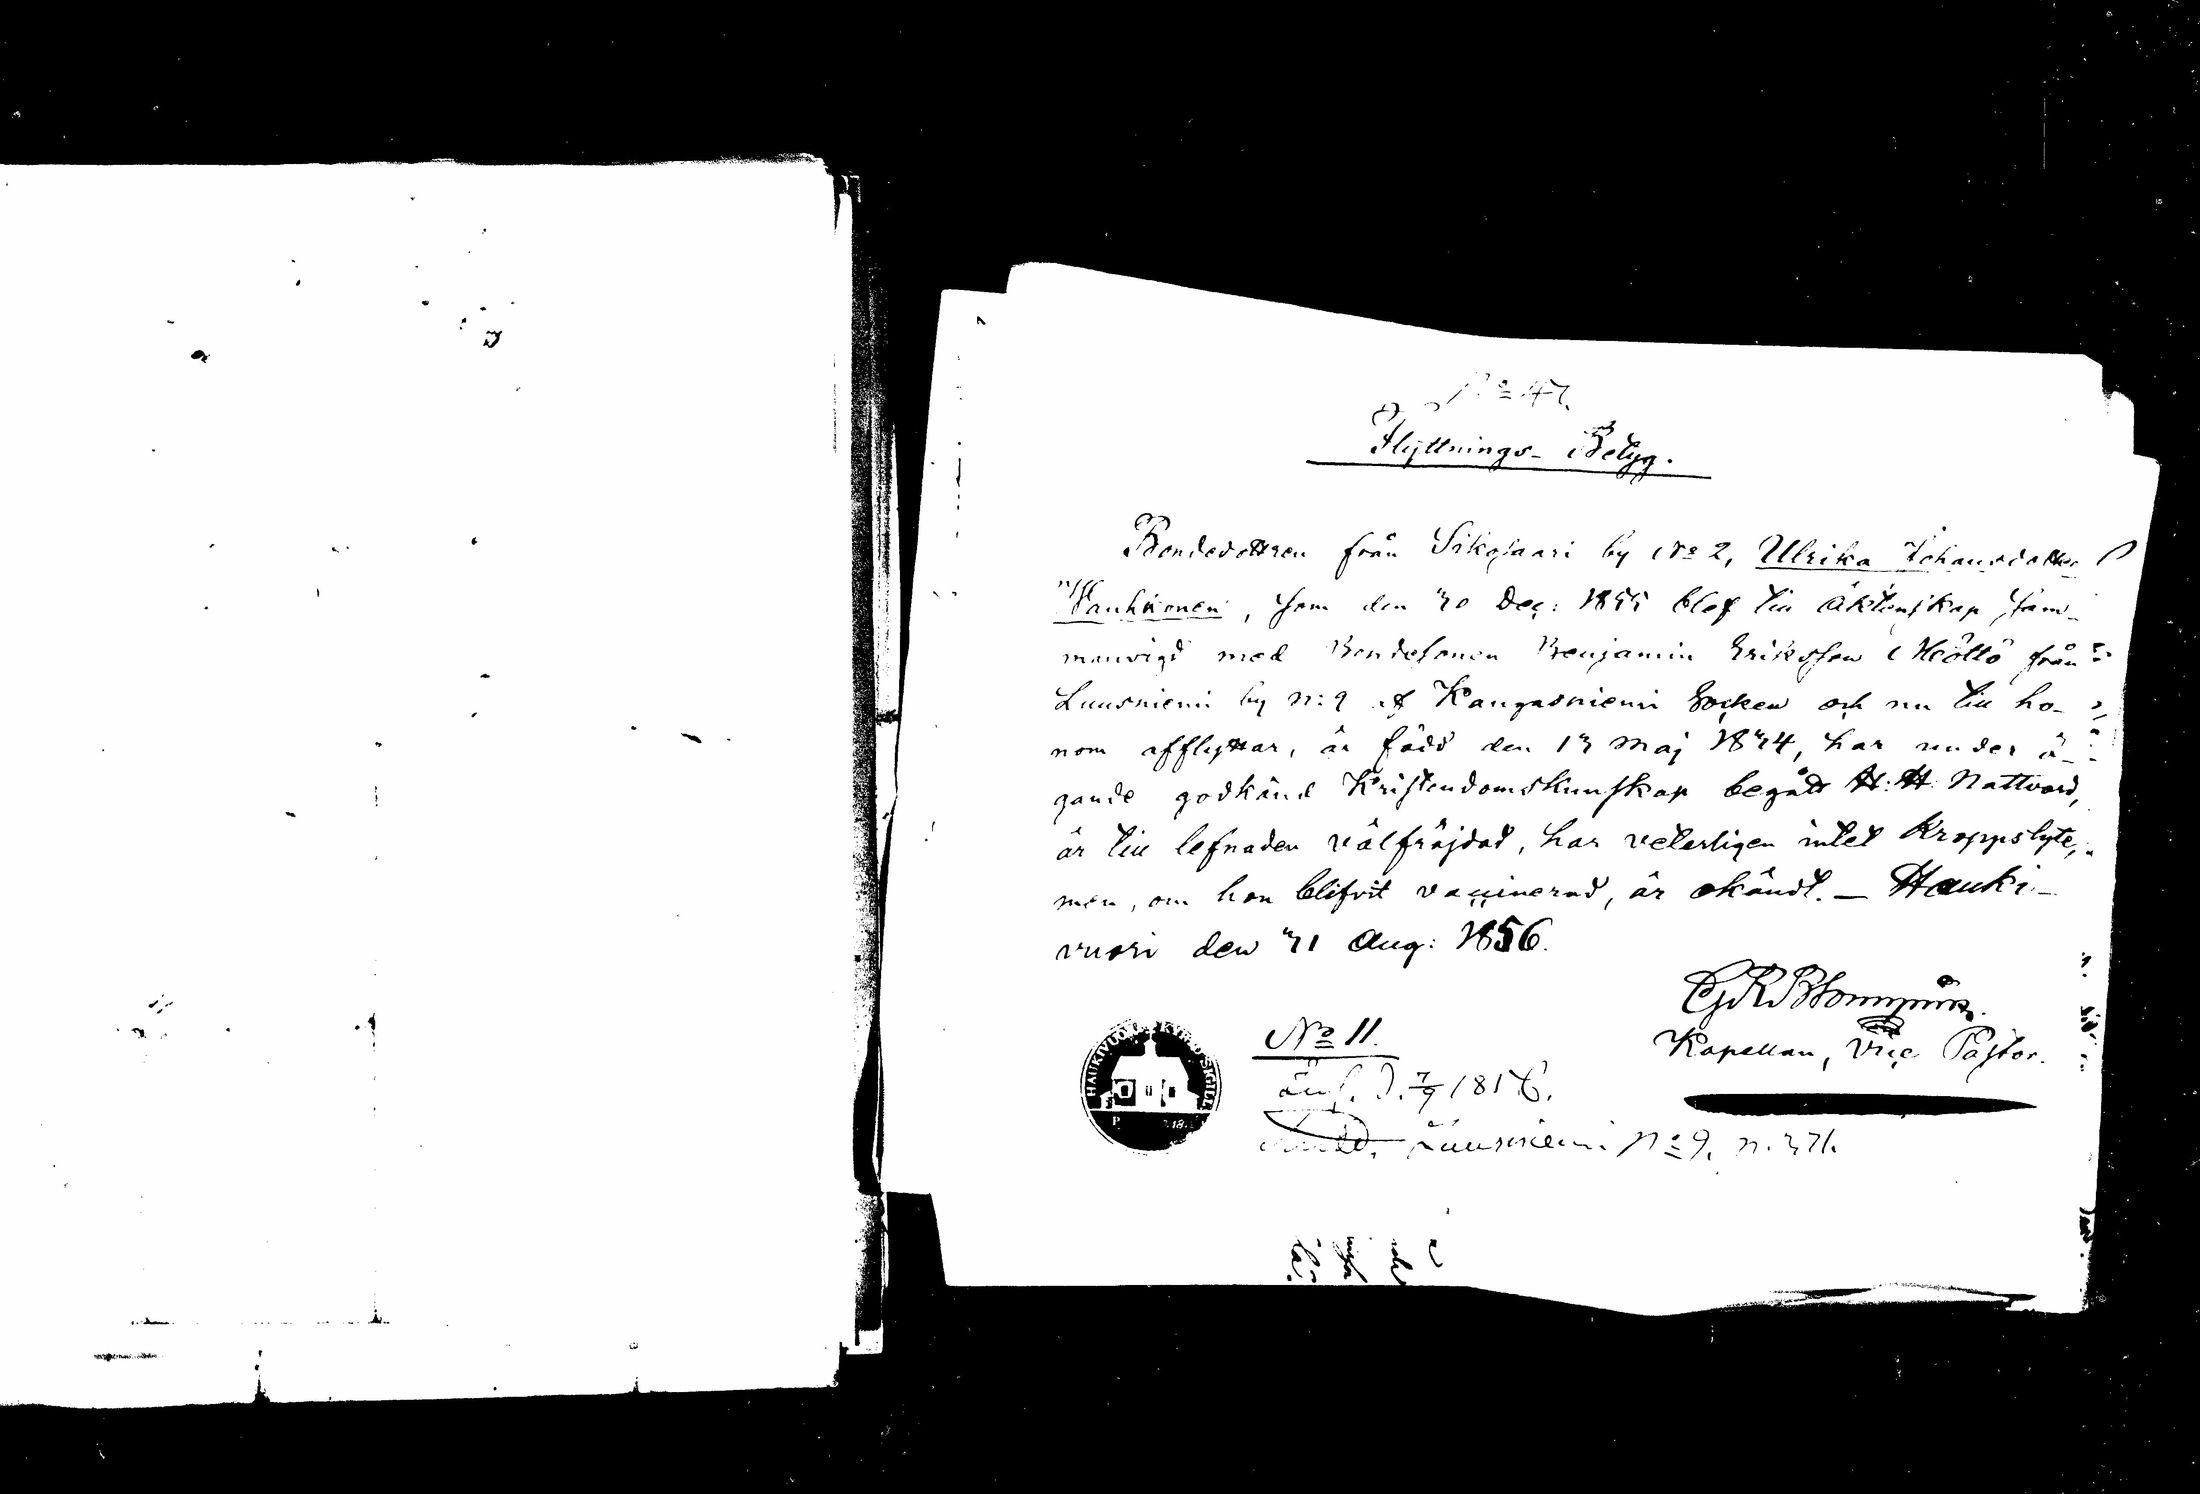 Nº 47.
Flyttnings-Betyg.
Bondedottren från Sikosaari by Nº 2, Ulrika Johansdotter
Pauhkonen, som den 30 Dec: 1855 blef till äktenskap sam-
manvigd med Bondesonen Benjamin Eriksson Höltö från
Luusniemi by n:9 af Kangasniemi Socken och nu till ho-
nom afflyttar, är född den 13 Maj 1834, har under ä-
gande godkänd Kristendomskunskap begått H: H: Nattvard,
är till lefnaden välfräjdad, har veterligen intet Kroppslyte,
men, om hon blifvit vaccinerad, är okändt. — Hauki-
vuori den 31 Aug: 1856.
Kapellan, Vice Pastor.
HAUKIVUORI KYRKO SIGILL
Nº 11.
7/9 1856.
Luusniemi Nº 9. n. 371.